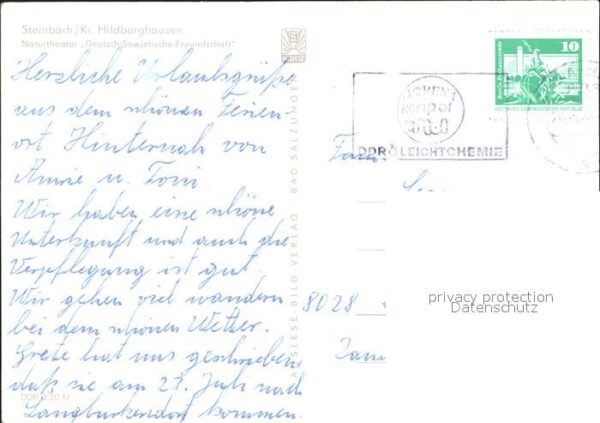 Steinbach/Kr. Hildburghausen
Naturtheater „Deutsch-Sowjetische Freundschaft"
Herzliche Urlaubsgrüße
aus dem schönen Ferien-
ort Hinternah von
Annie u. Toni.
Wir haben eine schöne
Unterkunft und auch die
Verpflegung ist gut.
Wir gehen viel wandern
bei dem schönen Wetter.
Grete hat uns geschrieben
daß sie am 23. Juli nach
kommen.
DDR 0,20 M
AUSLESE-BILD-VERLAG - BAD SALZUNGEN
10
DDR LEICHTCHEMIE
8028
privacy protection
Datenschutz